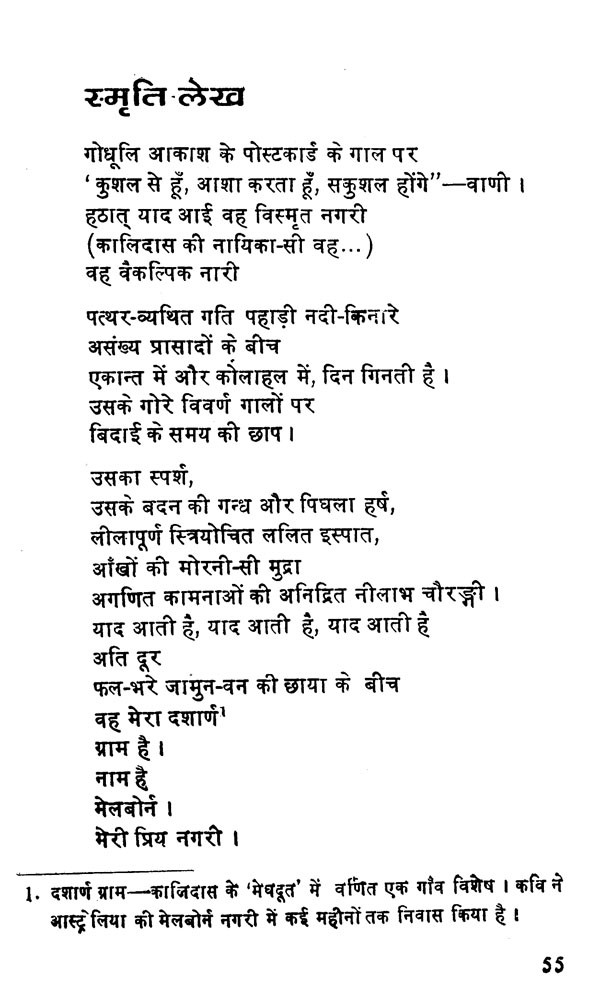 स्मृति-लेख
गोधूलि आकाश के पोस्टकार्ड के गाल पर
‘कुशल से हूँ, आशा करता हूँ, सकुशल होंगे”—वाणी ।
हठात् याद आई वह विस्मृत नगरी
(कालिदास की नायिका-सी वह...)
वह वैकल्पिक नारी
पत्थर-व्यथित गति पहाड़ी नदी-किनारे
असंख्य प्रासादों के बीच
एकान्त में और कोलाहल में, दिन गिनती है ।
उसके गोरे विवर्ण गालों पर
बिदाई के समय की छाप ।
उसका स्पर्श,
उसके बदन की गन्ध और पिघला हर्ष,
लीलापूर्ण स्त्रियोचित ललित इस्पात,
आँखों की मोरनी-सी मुद्रा
अगणित कामनाओं की अनिद्रित नीलाभ चौरङ्गी ।
याद आती है, याद आती है, याद आती है
अति दूर
फल-भरे जामुन-वन की छाया के बीच
वह मेरा दशार्ण¹
ग्राम है ।
नाम है
मेलबोर्न ।
मेरी प्रिय नगरी ।
1. दशार्ण ग्राम—कालिदास के ‘मेघदूत’ में वर्णित एक गाँव विशेष । कवि ने
आस्ट्रेलिया की मेलबोर्न नगरी में कई महीनों तक निवास किया है ।
55